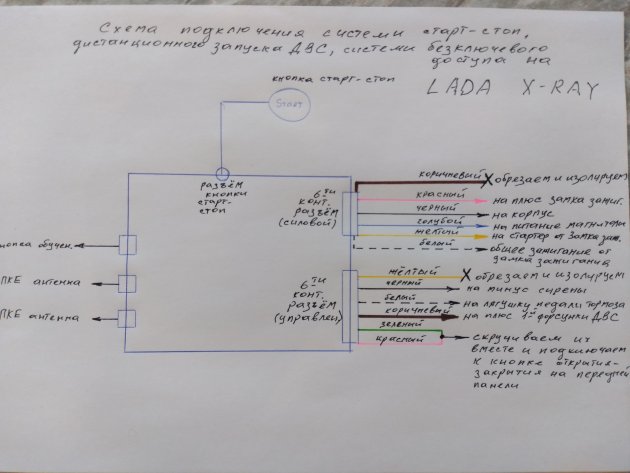 Схема подключения системы старт-стоп,
дистанционного запуска ДВС, системы безключевого
доступа на
LADA X-RAY
кнопка старт-стоп
START
разъём
кнопки
старт-
стоп
6-ти
конт.
разъём
(силовой)
коричневый обрезаем и изолируем
красный на плюс замка зажиг.
черный на корпус
голубой на питание магнитолы
жёлтый на стартер от замка заж.
белый общее зажигание от
замка зажигания
кнопка обучен.
ПКЕ антенна
ПКЕ антенна
6-ти
конт.
разъём
(управлен)
жёлтый обрезаем и изолируем
черный на минус сирены
белый на лягушку педали тормоза
коричневый на плюс 1-й форсунки ДВС
зеленый
красный
скручиваем их
вместе и подключаем
к кнопке открытия-
закрытия на передней
панели